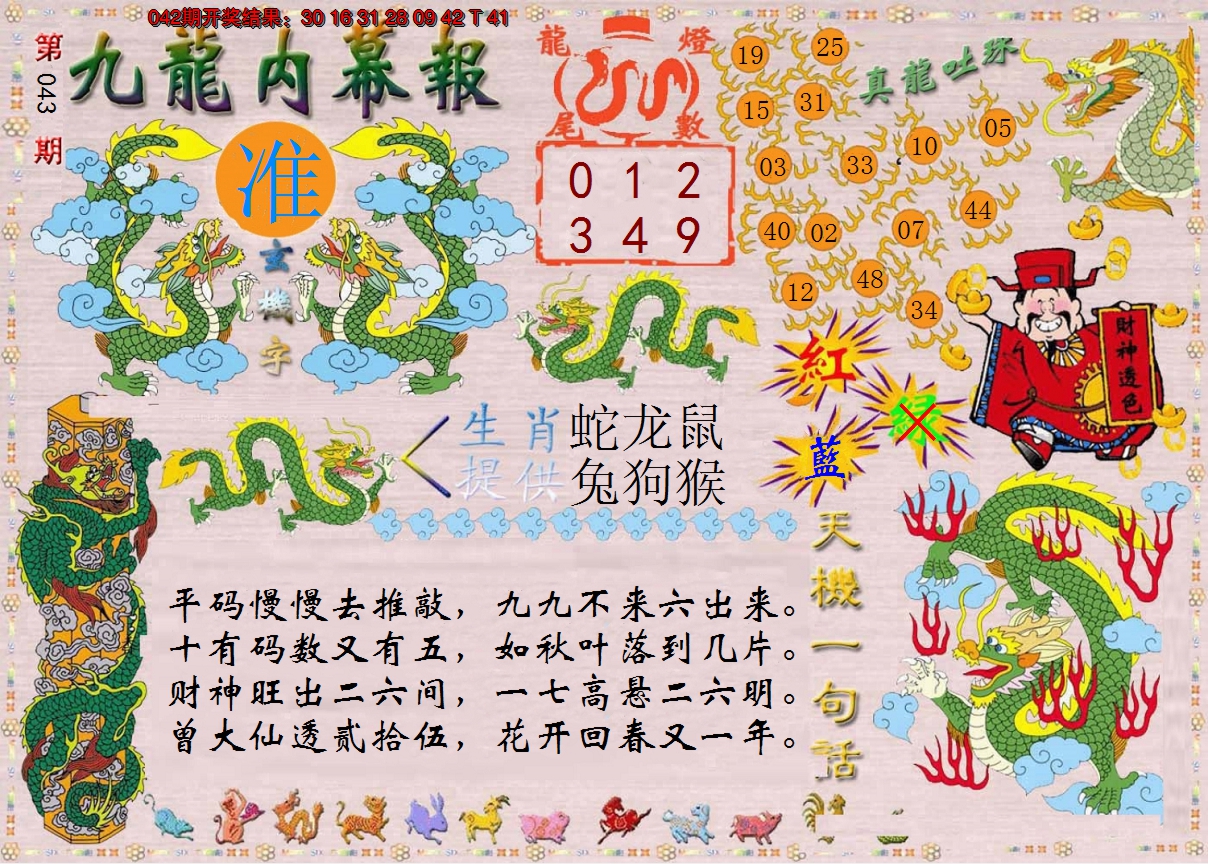 042期开奖结果：30 16 31 28 09 42 T 41
第043期
九龍内幕報
准
玄機字
龍燈
尾數
0 1 2
3 4 9
真龍吐珠
19
25
15
31
03
33
10
05
40
02
07
44
12
48
34
財神透色
紅
绿
藍
生肖 蛇龙鼠
提供 兔狗猴
天機一句話
平码慢慢去推敲，九九不来六出来。
十有码数又有五，如秋叶落到几片。
财神旺出二六间，一七高悬二六明。
曾大仙透贰拾伍，花开回春又一年。